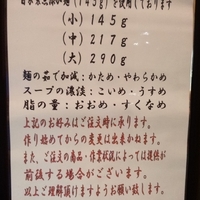 (145g)を使用しております
(小) 145g
(中) 217g
(大) 290g
麺の茹で加減:かため・やわらかめ
スープの濃淡:こいめ・うすめ
脂の量:おおめ・すくなめ
上記のお好みはご注文時に承ります。
作り始めてからの変更は出来かねます。
また、ご注文の商品・作業状況によっては提供が
前後する場合がございます。
以上ご理解頂けますようお願い致します。